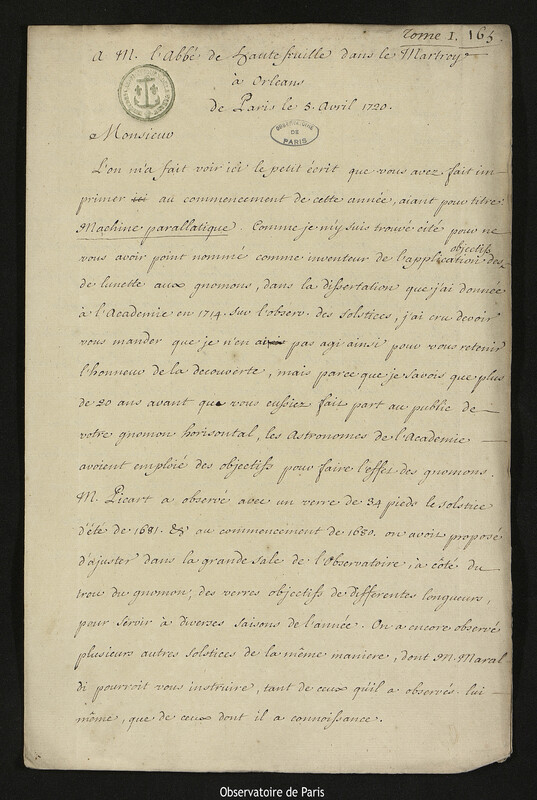 Tome I. 165.
A M. l'Abbé de Hautefeuille dans le Martroy
à Orleans
de Paris le 3. Avril 1720.
OBSERVATOIRE
DE
PARIS
Monsieur
L'on m'a fait voir ici le petit écrit que vous avez fait im
primer ici au commencement de cette année, aiant pour titre
Machine parallatique. Comme je m'y suis trouvé cité pour ne
vous avoir point nommé comme inventeur de l'application des objectifs
de lunette aux gnomons, dans la dissertation que j'ai donnée
à l'Academie en 1714. sur l'observ. des solstices, j'ai cru devoir
vous mander que je n'en pas agi ainsi pour vous retenir
l'honneur de la decouverte, mais parce que je savois que plus
de 20 ans avant que vous eussiez fait part au public de
votre gnomon horisontal, les Astronomes de l'Academie
avoient emploié des objectifs pour faire l'effet des gnomons.
M. Picart a observé avec un verre de 34 pieds le solstice
d'été de 1681. & au commencement de 1680. on avoit proposé
d'ajuster dans la grande sale de l'Observatoire, à côté du
trou du gnomon, des verres objectifs de differentes longueurs,
pour servir à diverses saisons de l'année. On a encore observé
plusieurs autres solstices de la même maniere, dont M. Maral
di pourroit vous instruire, tant de ceux qu'il a observés lui
même, que de ceux dont il a connoissance.
Observatoire de Paris